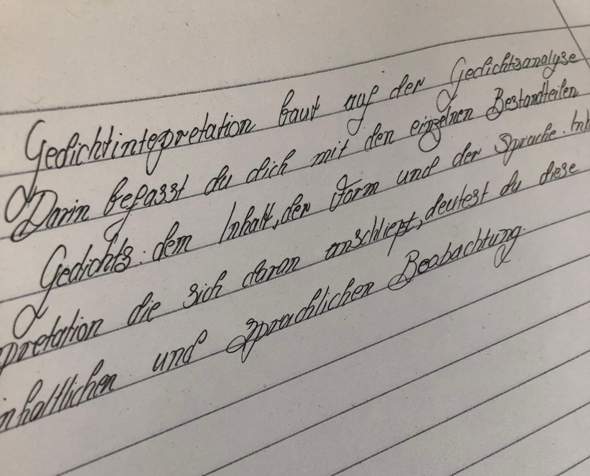 Gedichtintepretation baut auf der Gedichtsanalyse
Darin befasst du dich mit den einzelnen Bestandteilen
Gedichts: dem Inhalt, der Form und der Sprache. In
pretation die sich daran anschließt, deutest du diese
inhaltlichen und sprachlichen Beobachtung